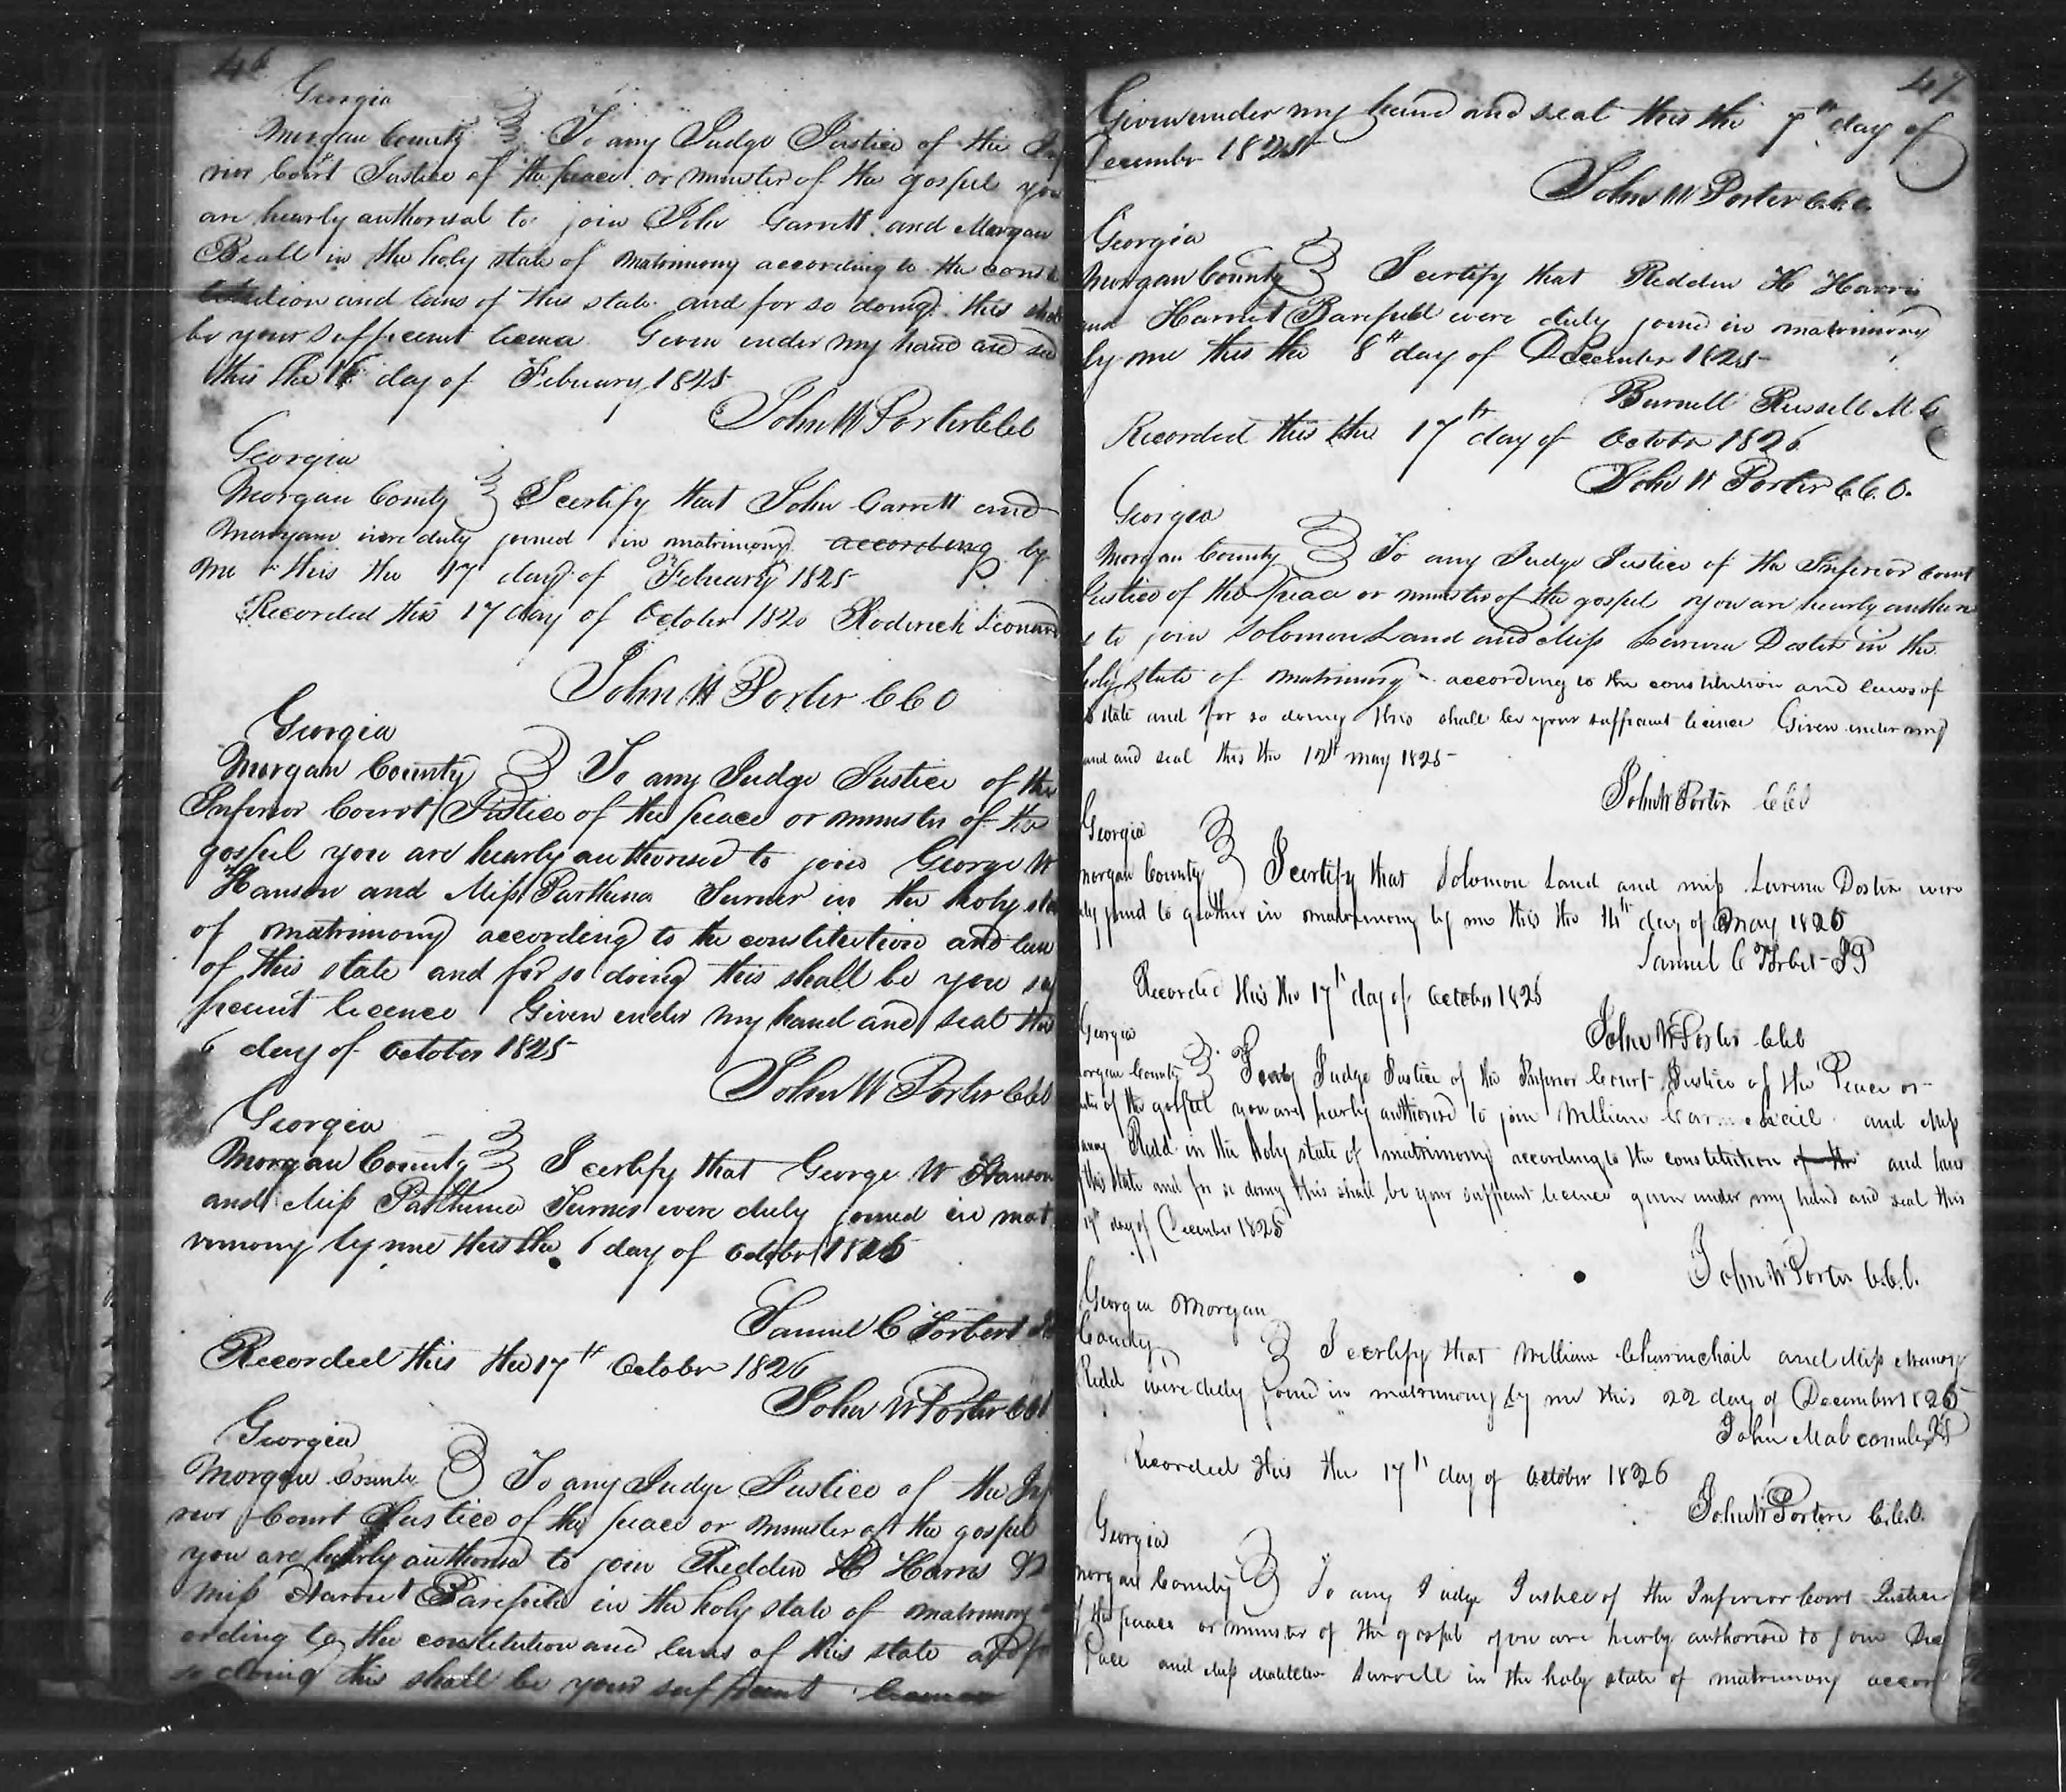 46
Georgia
Morgan County To any Judge Justice of the Inf
rior Court Justice of the peace or minister of the gospel you
are hearly authorised to join John Garrett and Maryan
Beall in the holy state of matrimony according to the consti
tution and laws of this state and for so doing this shall
be your sufficient licence Given under my hand and seal
this the 16 day of February 1825
John W Porter CCO
Georgia
Morgan County I certify that John Garrett and
Maryann were duly joined in matrimony according by
me this the 17 day of February 1825
Recorded this 17 day of October 1826 Roderick Leonard
John W Porter CCO
Georgia
Morgan County To any Judge Justice of the
Inferior Court Justice of the peace or minister of the
gospel you are hearly authorised to join George W
Hanson and Miss Parthena Turner in the holy state
of matrimony according to the constitution and laws
of this state and for so doing this shall be you suf
ficeint licence Given under my hand and seal this
6 day of October 1825
John W Porter CCO
Georgia
Morgan County I certify that George W Hanson
and Miss Parthena Turner were duly joined in mat
rimony by me this the 6 day of October 1825
Samuel C Torbert
Recorded this the 17th October 1826
John W Porter CCO
Georgia
Morgan County To any Judge Justice of the Inf
rior Court Justice of the peace or minister of the gospel
you are hearly authorised to join Redden H Harris &
miss Harriet Barefield in the holy state of matrimony
ording to the constitution and laws of this state and for
so doing this shall be your sufficient licence
47
Given under my hand and seal this the 7th day of
December 1825
John W Porter C.C.O.
Georgia
Morgan County I certify that Redden H Harris
and Harriet Barefield were duly joined in matrimony
by me this the 8th day of December 1825
Burnell Russell M G
Recorded this the 17th day of October 1826
John W Porter C.C.O.
Georgia
Morgan County To any Judge Justice of the Inferior Court
Justice of the peace or minister of the gospel you are hearly authori
s to join Solomon Land and Miss Lavina Doster in the
holy state of matrimony according to the constitution and laws of
state and for so doing this shall be your sufficient licence Given under my
hand and seal this the 12th may 1825
John W Porter CCO
Georgia
Morgan County I certify that Solomon Land and miss Lavina Doster were
duly joind to geather in matrimony by me this the 14th day of May 1825
Samuel C Torbet JP
Recorded this the 17th day of October 1826
John W Porter CCO
Georgia
Morgan County To any Judge Justice of the Inferior Court Justice of the Peace or
of the gospel you are hearly authorised to join William Carmichail and Miss
Redd in the holy state of matrimony according to the constitution of the and laws
this state and for so doing this shall be your sufficient licence given under my hand and seal this
day of December 1825
John W Porter C.C.O.
Georgia Morgan
County I certify that William Charmichail and Miss Nancy
Redd were duly joined in matrimony by me this 22 day of December 1825
John
Recorded this the 17th day of October 1826
John W Porter C.C.O.
Georgia
Morgan County To any Judge Justice of the Inferior Court Justice
of the peace or minister of the gospel you are hearly authorised to join
Pace and Miss in the holy state of matrimony accor